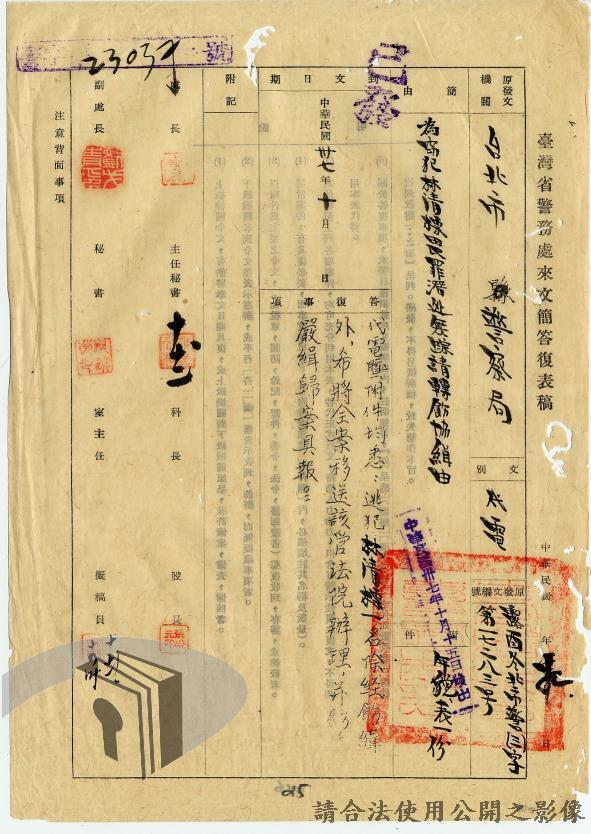 臺灣省警務處來文簡答復表稿
中華民國 年 月 日
原發文機關
台北市警察局
文別
代電
原發文編號
第七二八三號
附件
年貌表一份
簡由
為竊犯林清標畏罪潛逃無踪請轉飭協緝由
到文日期
中華民國卅七年十月 日
答復事項
代電暨附件均悉:逃犯林清標一名除經飭緝
外,希將全案移送該管法院辦理,并
嚴緝歸案具報
附記
處長
主任秘書
科長
股長
副處長
秘書
室主任
擬稿員
注意背面事項
已發
中華民國卅七年十月十五日發出
23037
號
015
請合法使用公開之影像